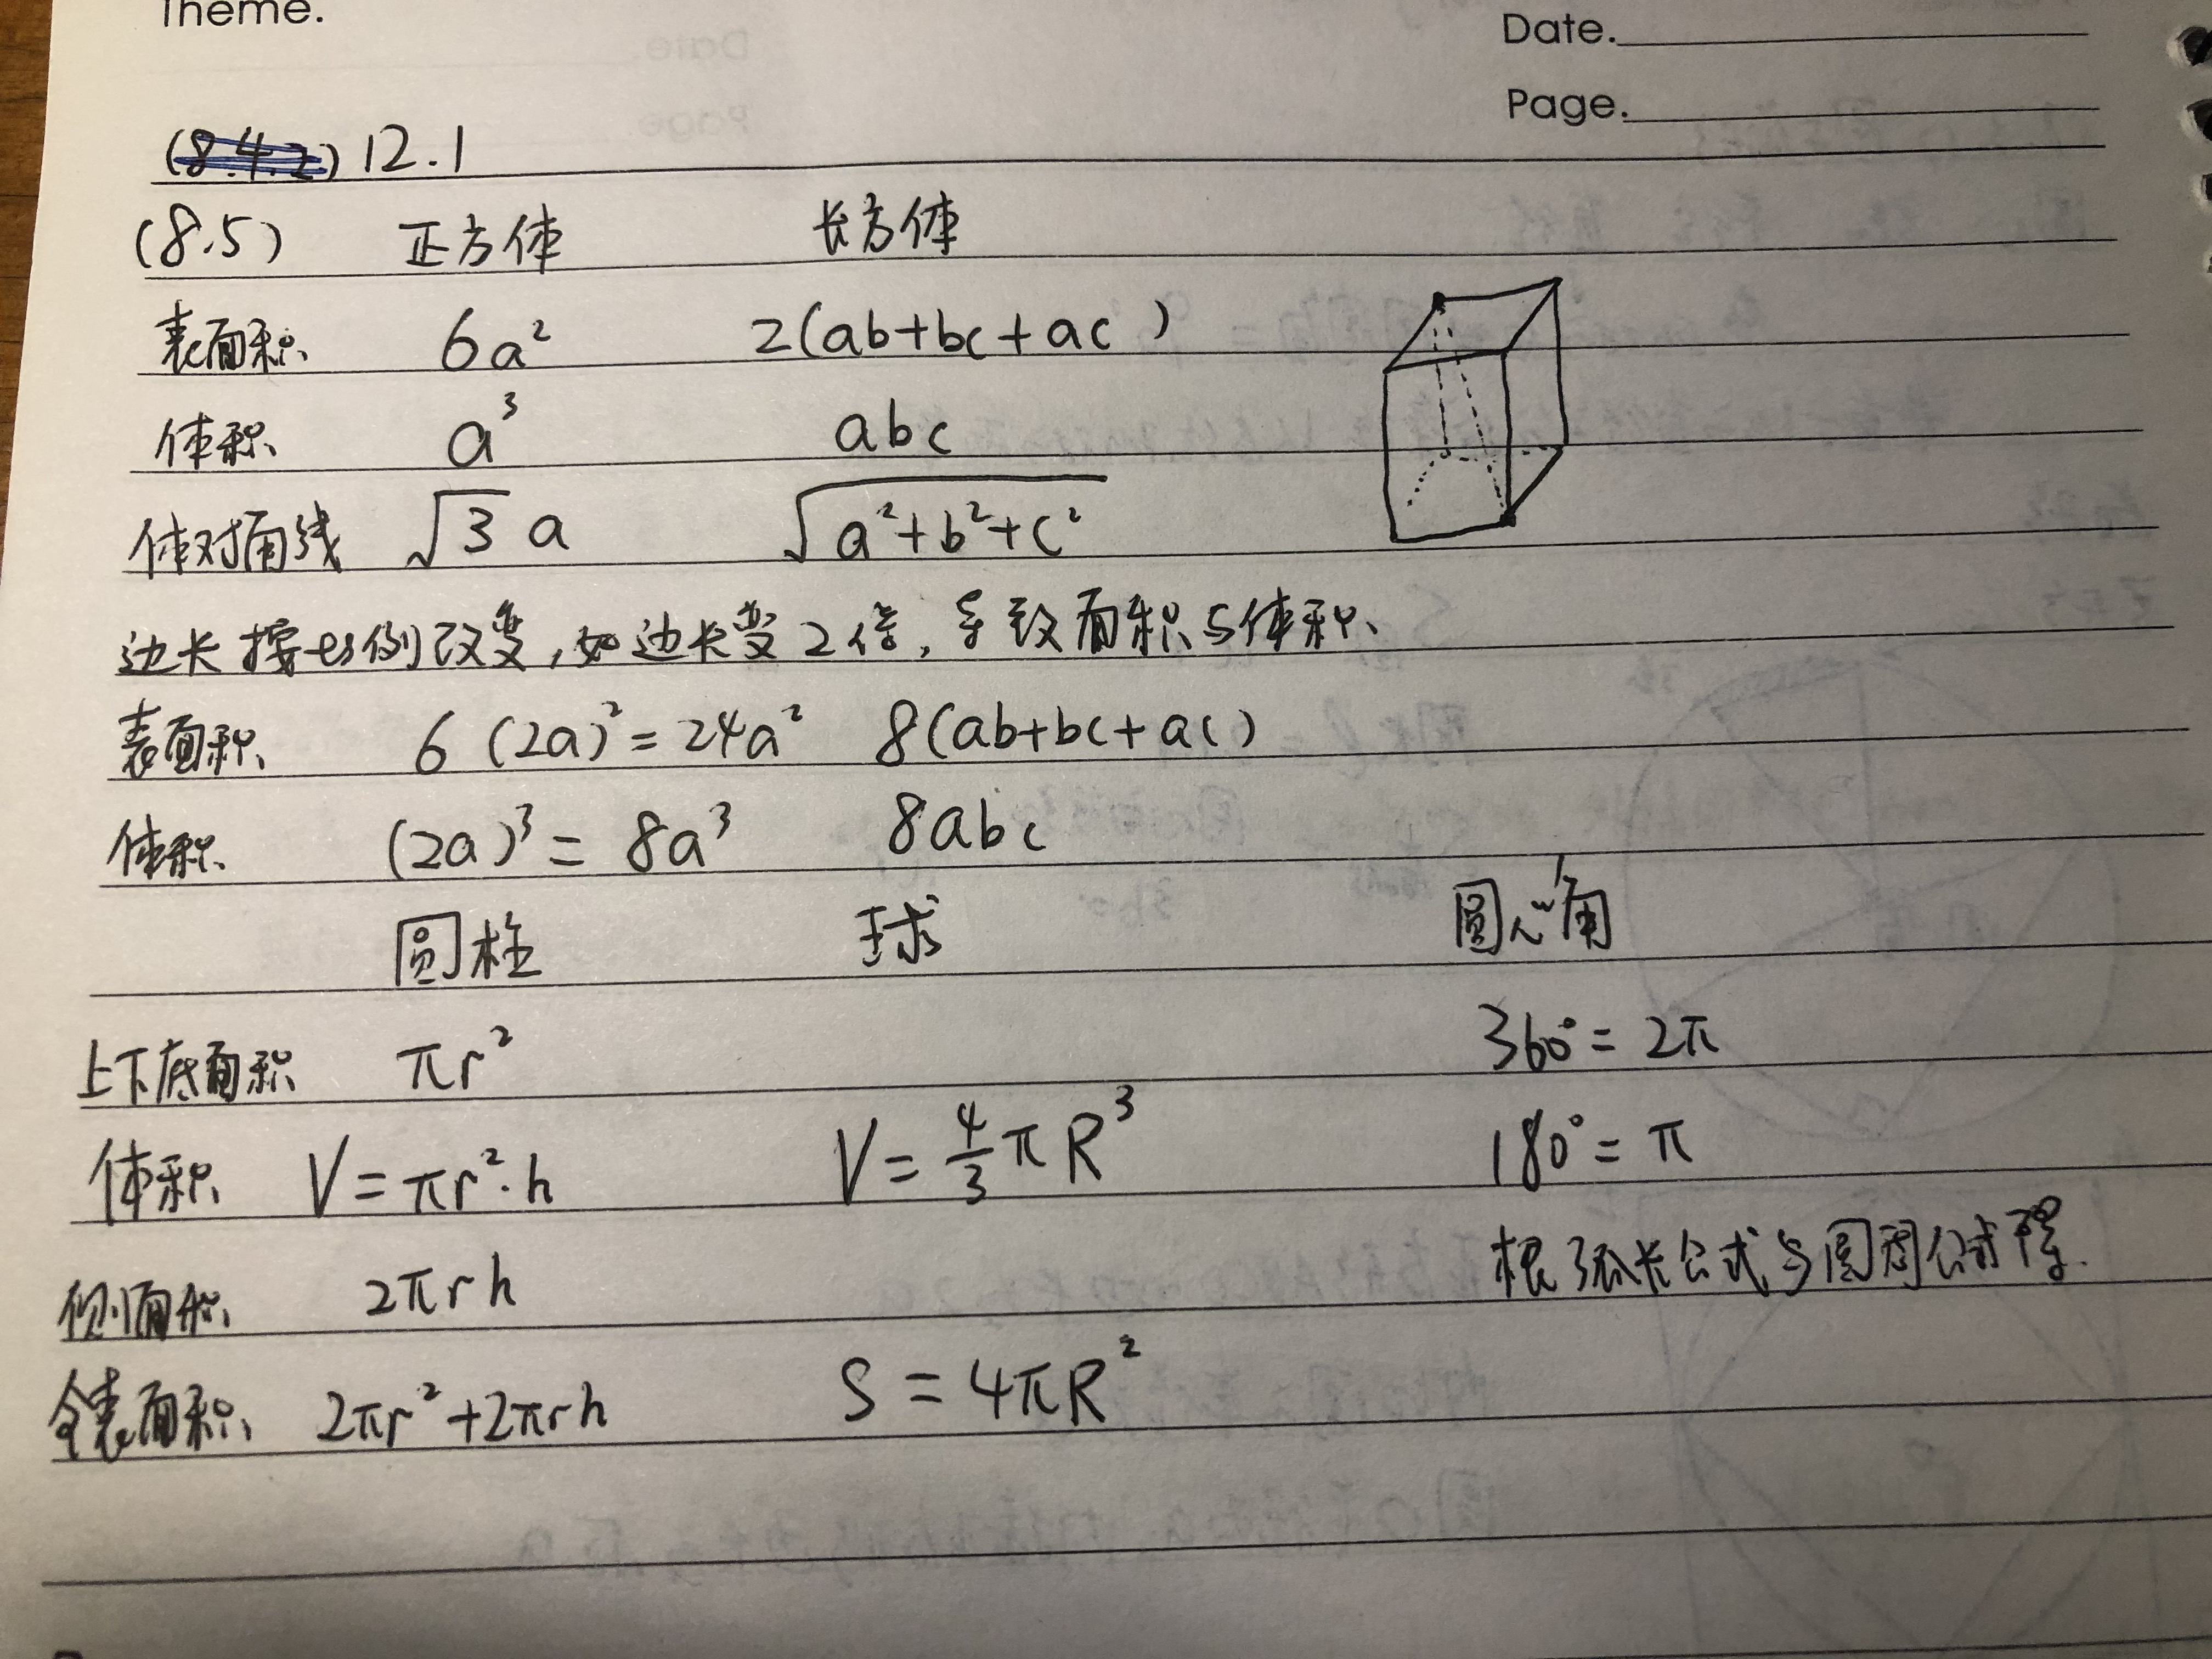 Theme.
Date.
Page.
(8.4.2) 12.1
(8.5) 正方体 长方体
表面积 6a² 2(ab+bc+ac)
体积 a³ abc
体对角线 √3 a √(a²+b²+c²)
边长按比例改变,如边长变2倍,导致面积与体积
表面积 6(2a)²=24a² 8(ab+bc+ac)
体积 (2a)³=8a³ 8abc
圆柱 球 圆心角
上下底面积 πr² 360°=2π
体积 V=πr²·h V=4/3πR³ 180°=π
侧面积 2πrh 根弧长公式与圆周公式得.
全表面积 2πr²+2πrh S=4πR²